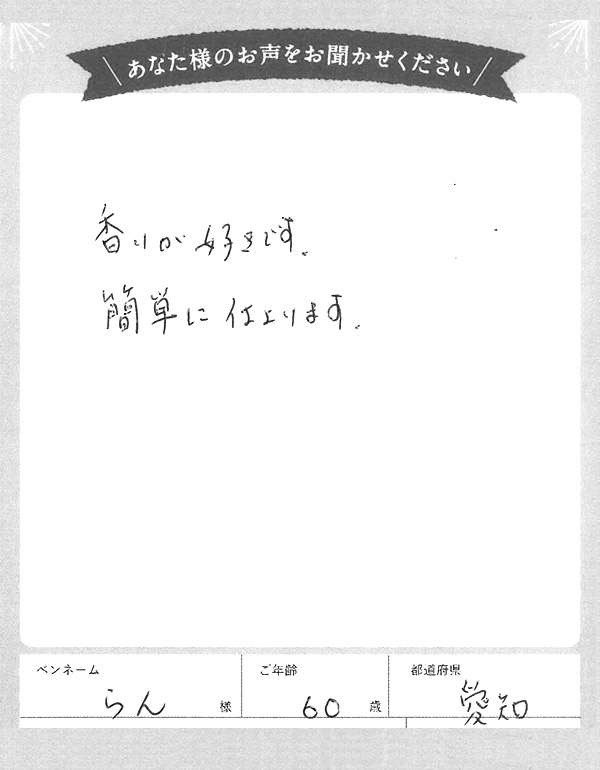 あなた様のお声をお聞かせください
香りが好きです。
簡単に仕上ります。
ペンネーム
らん 様
ご年齢
60 歳
都道府県
愛知